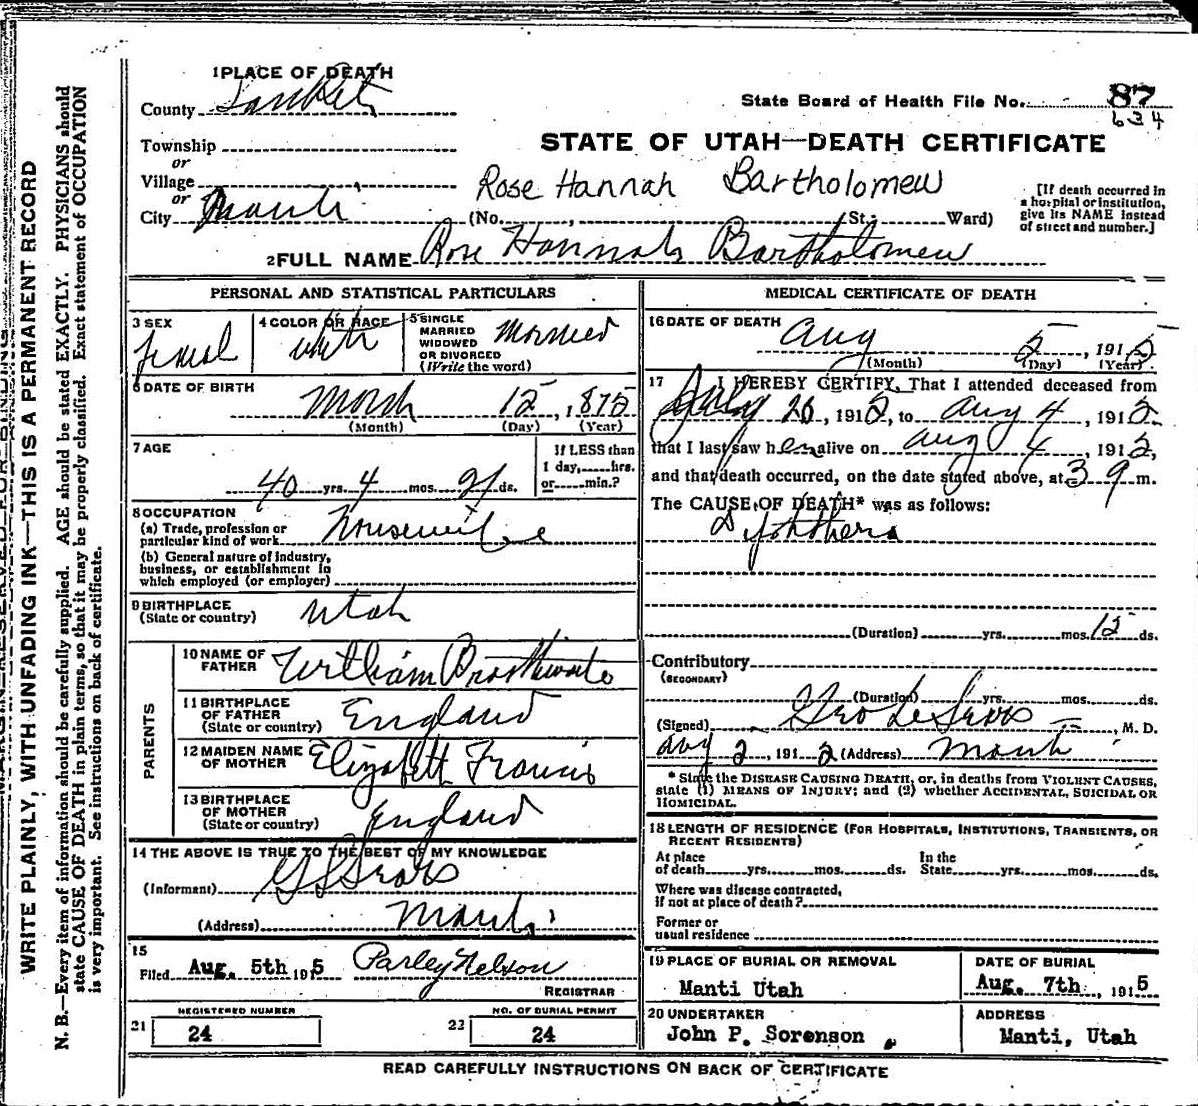 1 PLACE OF DEATH
County Sanpete
State Board of Health File No. 87
634
Township
or
Village
or
City Manti
STATE OF UTAH—DEATH CERTIFICATE
Rose Hannah Bartholomew
(No. , St.; Ward)
[If death occurred in
a hospital or institution,
give its NAME instead
of street and number.]
2 FULL NAME Rose Hannah Bartholomew
PERSONAL AND STATISTICAL PARTICULARS
3 SEX
Femal
4 COLOR OR RACE
white
5 SINGLE
MARRIED
WIDOWED
OR DIVORCED
(Write the word)
Married
6 DATE OF BIRTH
March 15, 1875
(Month) (Day) (Year)
7 AGE
40 yrs. 4 mos. 21 ds.
If LESS than
1 day, hrs.
or min.?
8 OCCUPATION
(a) Trade, profession or
particular kind of work Housewife
(b) General nature of industry,
business, or establishment in
which employed (or employer)
9 BIRTHPLACE
(State or country)
Utah
PARENTS
10 NAME OF
FATHER
William Brathwaite
11 BIRTHPLACE
OF FATHER
(State or country)
England
12 MAIDEN NAME
OF MOTHER
Elizabeth Francis
13 BIRTHPLACE
OF MOTHER
(State or country)
England
14 THE ABOVE IS TRUE TO THE BEST OF MY KNOWLEDGE
(Informant) G L Sears
(Address) Manti
15
Filed Aug. 5th 1915 Parley Nelson
REGISTRAR
21
REGISTERED NUMBER
24
22
NO. OF BURIAL PERMIT
24
MEDICAL CERTIFICATE OF DEATH
16 DATE OF DEATH
Aug 5, 1915
(Month) (Day) (Year)
17 I HEREBY CERTIFY, That I attended deceased from
July 20, 1915, to Aug 4, 1915.
that I last saw her alive on Aug 4, 1915,
and that death occurred, on the date stated above, at 3 m.
The CAUSE OF DEATH* was as follows:
(Duration) yrs. mos. 15 ds.
Contributory
(SECONDARY)
(Duration) yrs. mos. ds.
(Signed) Geo L Sears, M. D.
Aug 5, 1915 (Address) Manti
* State the DISEASE CAUSING DEATH, or, in deaths from VIOLENT CAUSES,
state (1) MEANS OF INJURY; and (2) whether ACCIDENTAL, SUICIDAL OR
HOMICIDAL.
18 LENGTH OF RESIDENCE (FOR HOSPITALS, INSTITUTIONS, TRANSIENTS, OR
RECENT RESIDENTS)
At place
of death yrs. mos. ds.
In the
State yrs. mos. ds.
Where was disease contracted,
if not at place of death?
Former or
usual residence
19 PLACE OF BURIAL OR REMOVAL
Manti Utah
DATE OF BURIAL
Aug. 7th, 1915
20 UNDERTAKER
John P. Sorenson
ADDRESS
Manti, Utah
READ CAREFULLY INSTRUCTIONS ON BACK OF CERTIFICATE
WRITE PLAINLY, WITH UNFADING INK—THIS IS A PERMANENT RECORD
N. B.—Every item of information should be carefully supplied. AGE should be stated EXACTLY. PHYSICIANS should
state CAUSE OF DEATH in plain terms, so that it may be properly classified. Exact statement of OCCUPATION
is very important. See instructions on back of certificate.